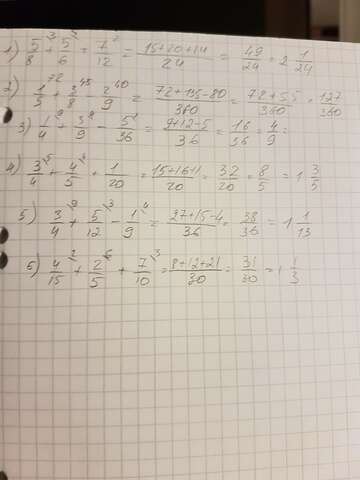 1) 5/8 ³ + 5/6 ⁴ + 7/12 ² = 15+20+14/24 = 49/24 = 2 1/24
2) 1/5 ⁷² + 3/8 ⁴⁵ - 2/9 ⁴⁰ = 72+135-80/360 = 72+55/360 = 127/360
3) 1/4 ⁹ + 3/9 ⁴ - 5/36 ¹ = 9+12-5/36 = 16/36 = 4/9 =
4) 3/4 ⁵ + 4/5 ⁴ + 1/20 = 15+16+1/20 = 32/20 = 8/5 = 1 3/5
5) 3/4 ⁹ + 5/12 ³ - 1/9 ⁴ = 27+15-4/36 = 38/36 = 1 1/13
6) 4/15 ² + 2/5 ⁶ + 7/10 ³ = 8+12+21/30 = 31/30 = 1 1/3